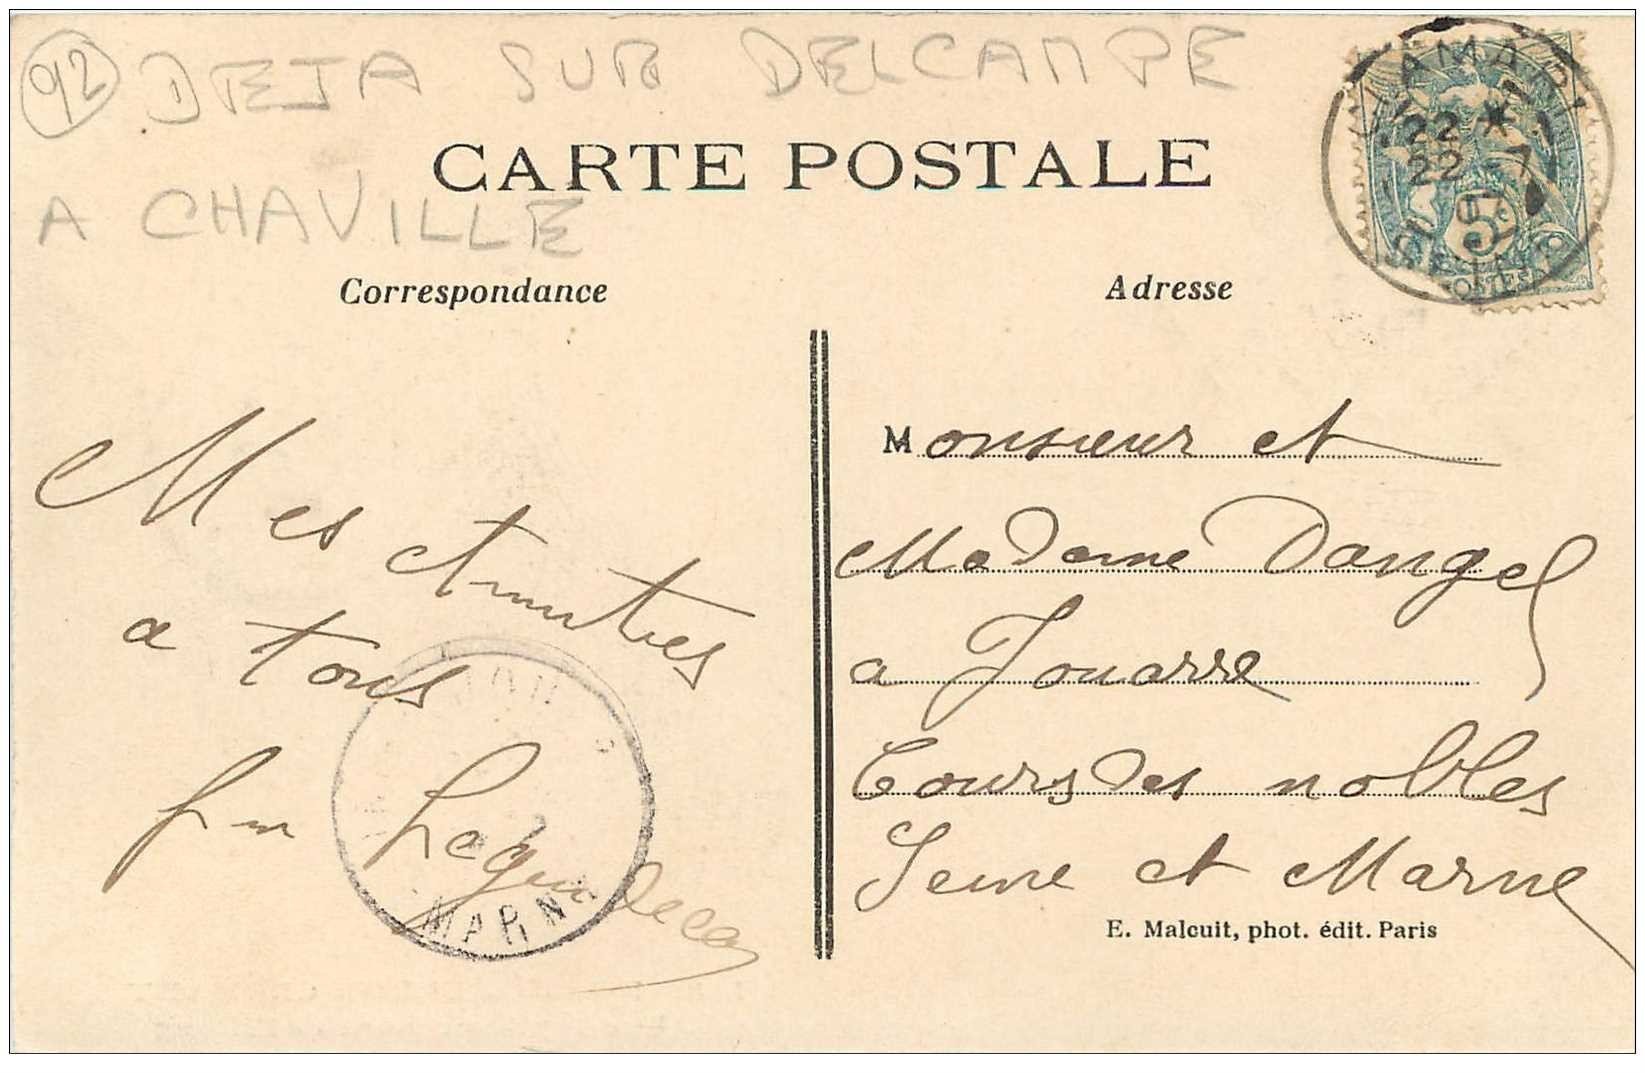 92
DEJA SUR DELCAMPE
A CHAVILLE
CARTE POSTALE
Correspondance
Adresse
22 * 
22 -7
SEINE
5
POSTES
Mes amities
a tous
Monsieur et
Madame Dangel
a Jouarre
Cours des nobles
Seine et Marne
MARNE
E. Malcuit, phot. édit. Paris